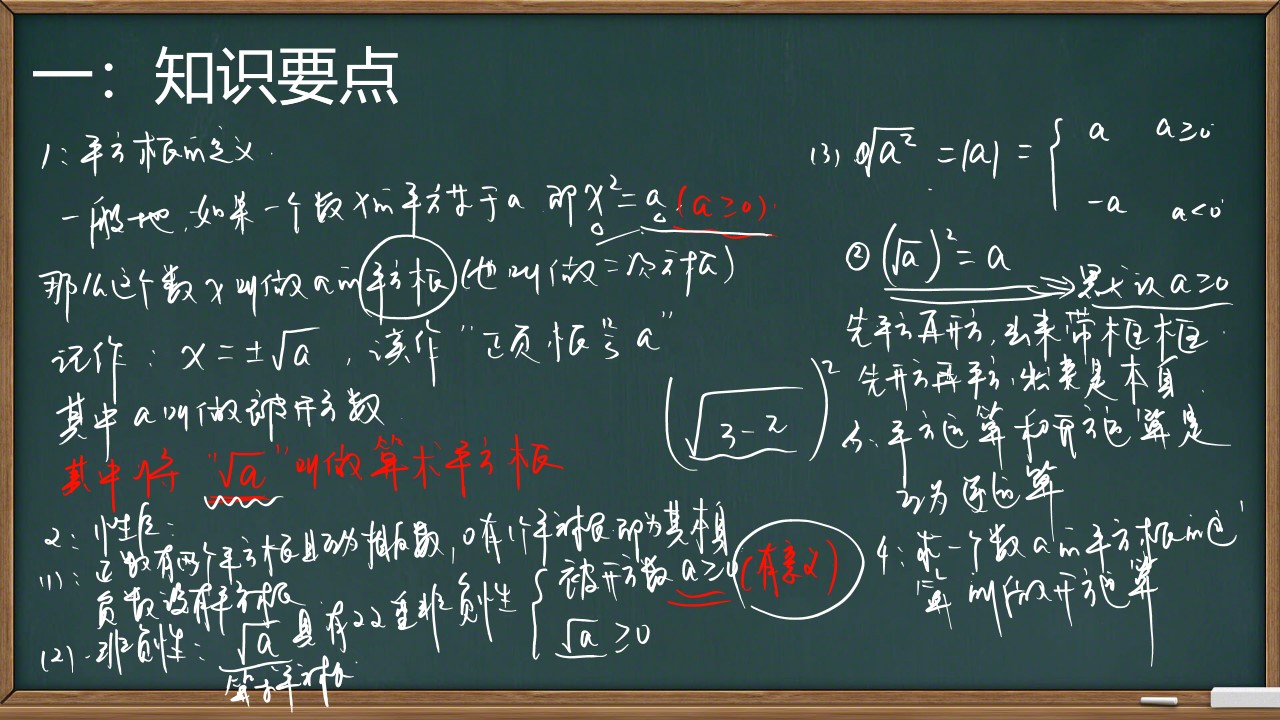 一：知识要点
1：平方根的定义.
一般地,如果一个数x的平方等于a 即x²=a (a≥0).
那么这个数x叫做a的平方根(也叫做二次方根)
记作：x=±√a ,读作"正负根号a"
其中a叫做被开方数
其中将"√a"叫做算术平方根
2：性质：
(1)：正数有两个平方根且互为相反数,0有1个平方根即为其本身
负数没有平方根
(2).非负性：√a具有双重非负性 { 被开方数a≥0 (有意义)
√a≥0
算术平方根
(√3-π)²
(3) ①√a² =|a|= { a a≥0
-a a<0
②(√a)²=a 默认a≥0
先平方再开方,出来带框框.
先开方再平方,出来是本身.
3：平方运算和开方运算是
互为逆运算
4：求一个数a的平方根的运
算叫做开方运算